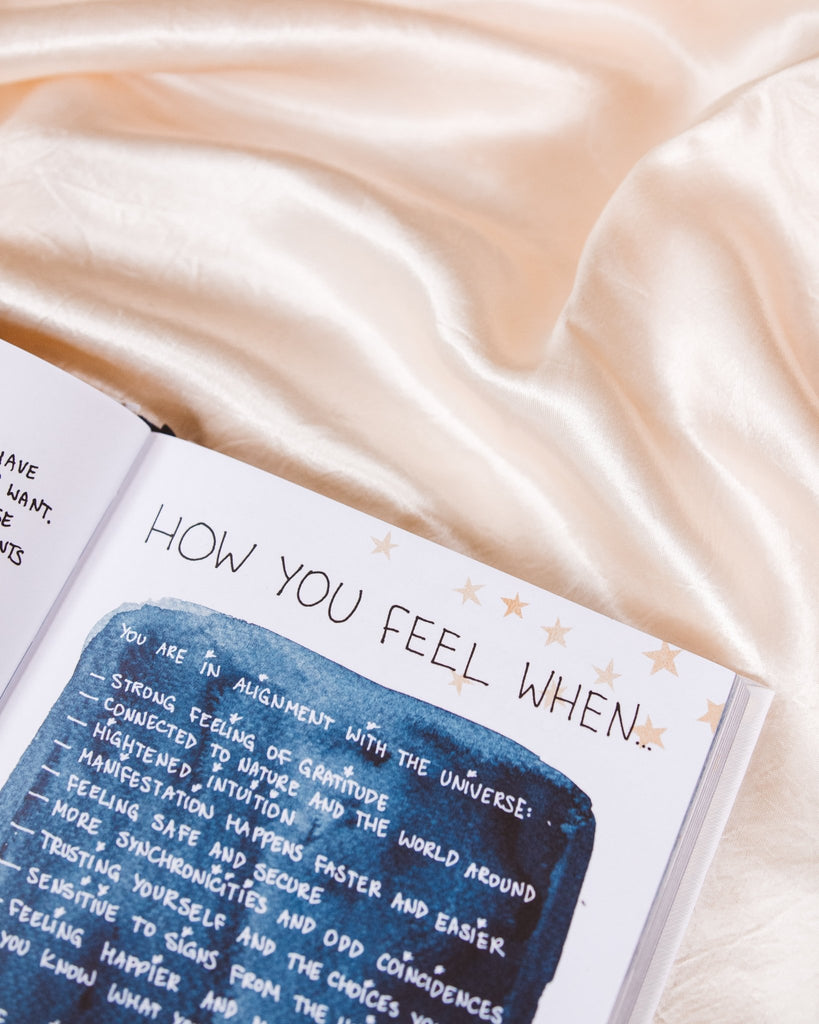 HAVE
WANT.
NTS
HOW YOU FEEL WHEN...
YOU ARE IN ALIGNMENT WITH THE UNIVERSE:
– STRONG FEELING OF GRATITUDE
– CONNECTED TO NATURE AND THE WORLD AROUND
– HIGHTENED INTUITION
– MANIFESTATION HAPPENS FASTER AND EASIER
– FEELING SAFE AND SECURE
– MORE SYNCHRONICITIES AND ODD COINCIDENCES
– TRUSTING YOURSELF AND THE CHOICES
– SENSITIVE TO SIGNS FROM THE
– FEELING HAPPIER AND
YOU KNOW WHAT